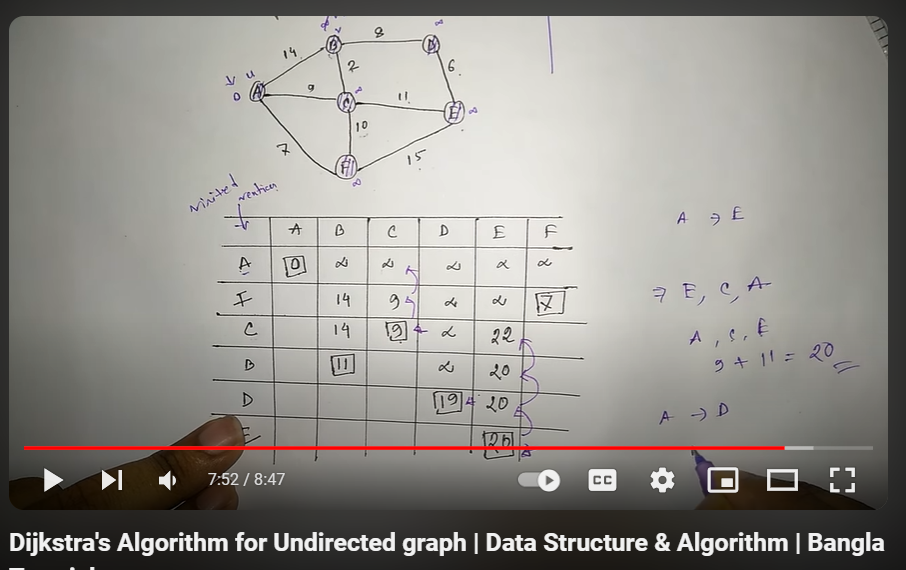 B 8 D
14
2 6
A 9
0
C 11 E
10
7
F 15
visited
A B C D E F
A 0 ∝ ∝ ∝ ∝ ∝
F 14 9 ∝ ∝ 7
C 14 9 ∝ 22
B 11 ∝ 20
D 19 20
E 20
A → E
⇒ E, C, A
A, C, E
9 + 11 = 20
A → D
7:52 / 8:47
CC
Dijkstra's Algorithm for Undirected graph | Data Structure & Algorithm | Bangla